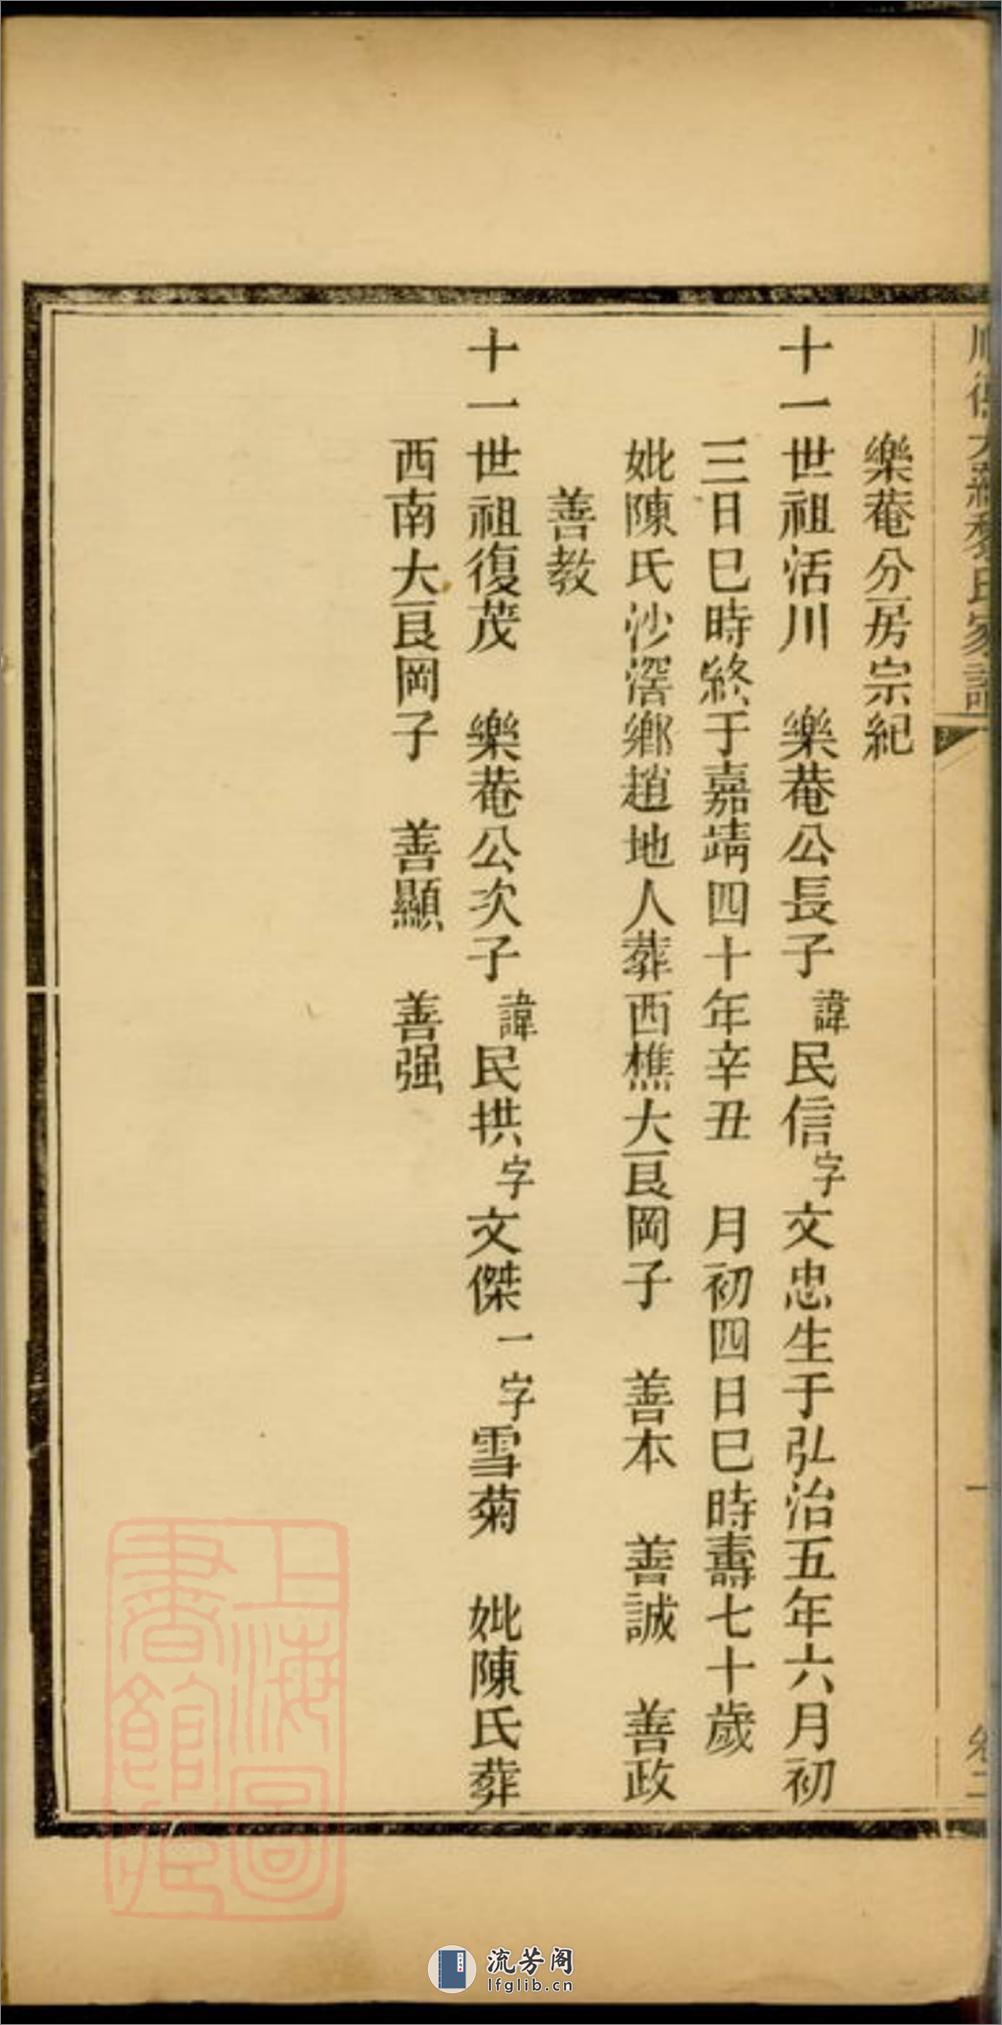 樂菴分房宗紀
十一世祖活川　樂菴公長子諱民信字文忠生于弘治五年六月初
三日巳時終于嘉靖四十年辛丑　月初四日巳時壽七十歲
妣陳氏沙滘鄉趙地人葬西樵大艮岡子　善本　善誠　善政
善教
十一世祖復茂　樂菴公次子諱民拱字文傑一字雪菊　妣陳氏葬
西南大艮岡子　善顯　善强
卷二
上海圖
書館藏
流芳阁
lfglib.cn